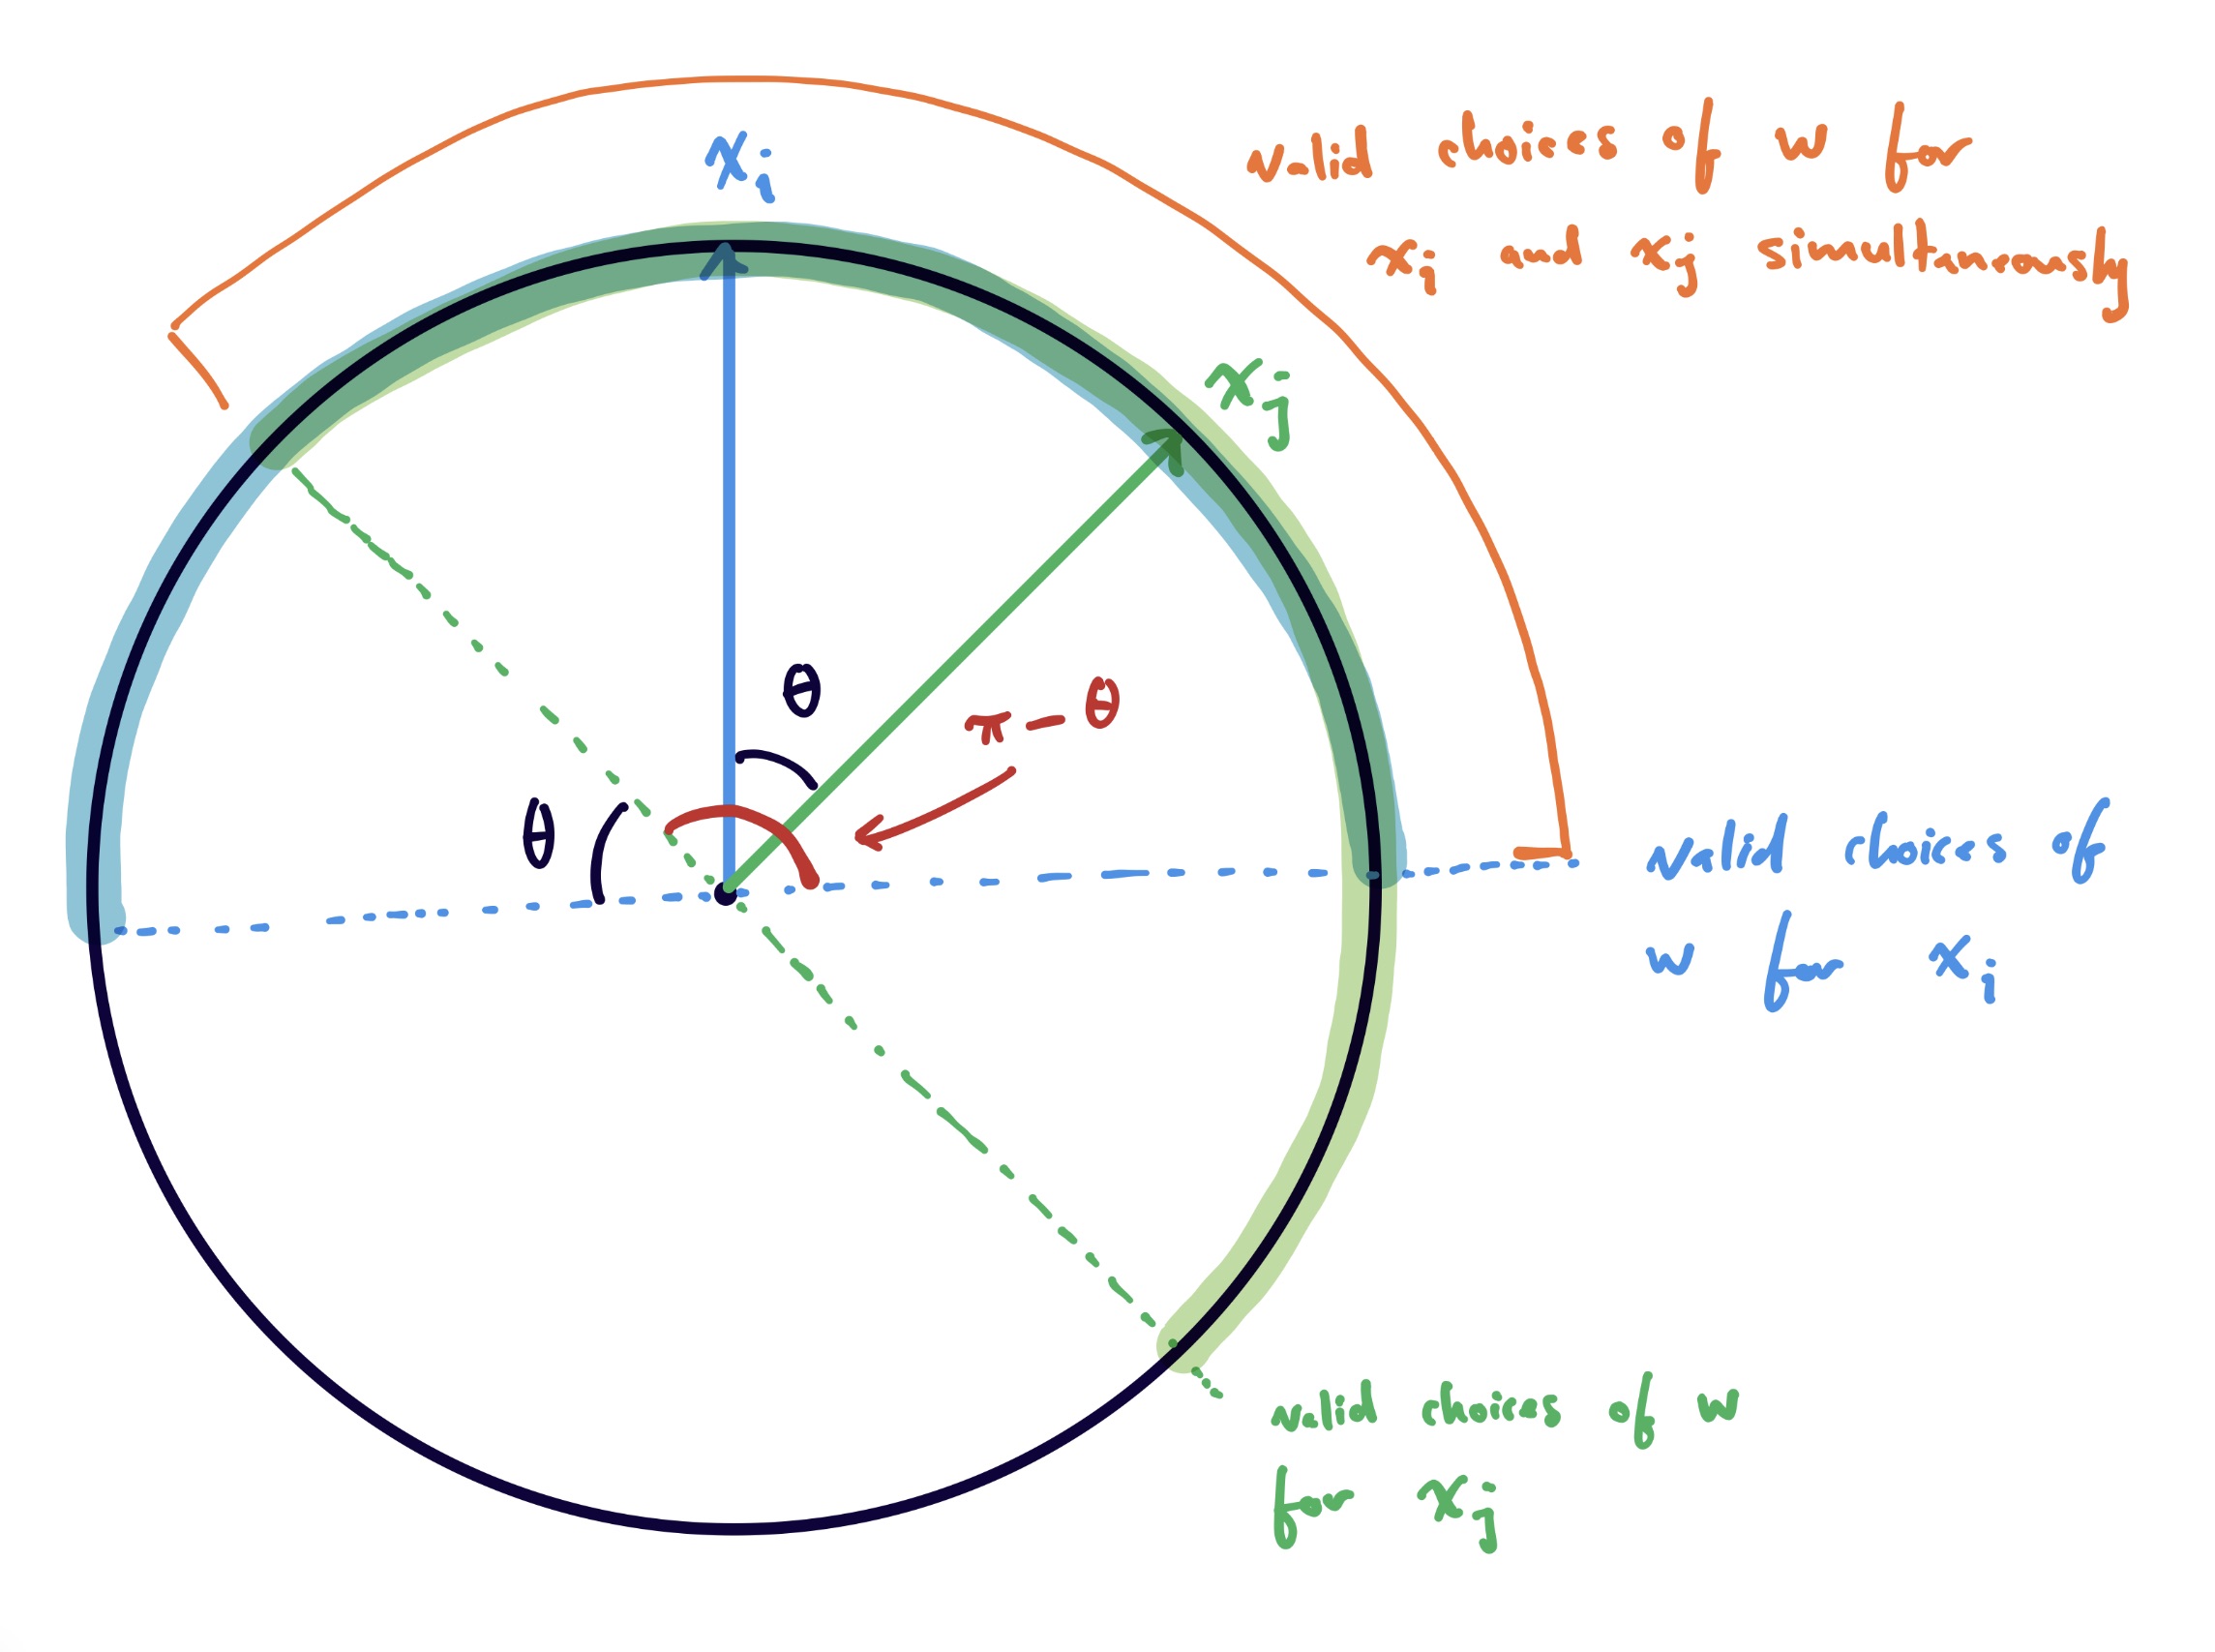 valid choices of w for
x_i and x_j simultaneously
x_i
x_j
θ
π - θ
θ
valid choices of
w for x_i
valid choices of w
for x_j